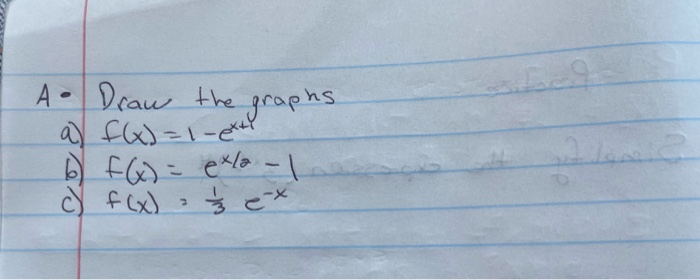 A • Draw the graphs
a) f(x) = 1 - e^x+1
b) f(x) = e^x/2 - 1
c) f(x) = 1/3 e^-x